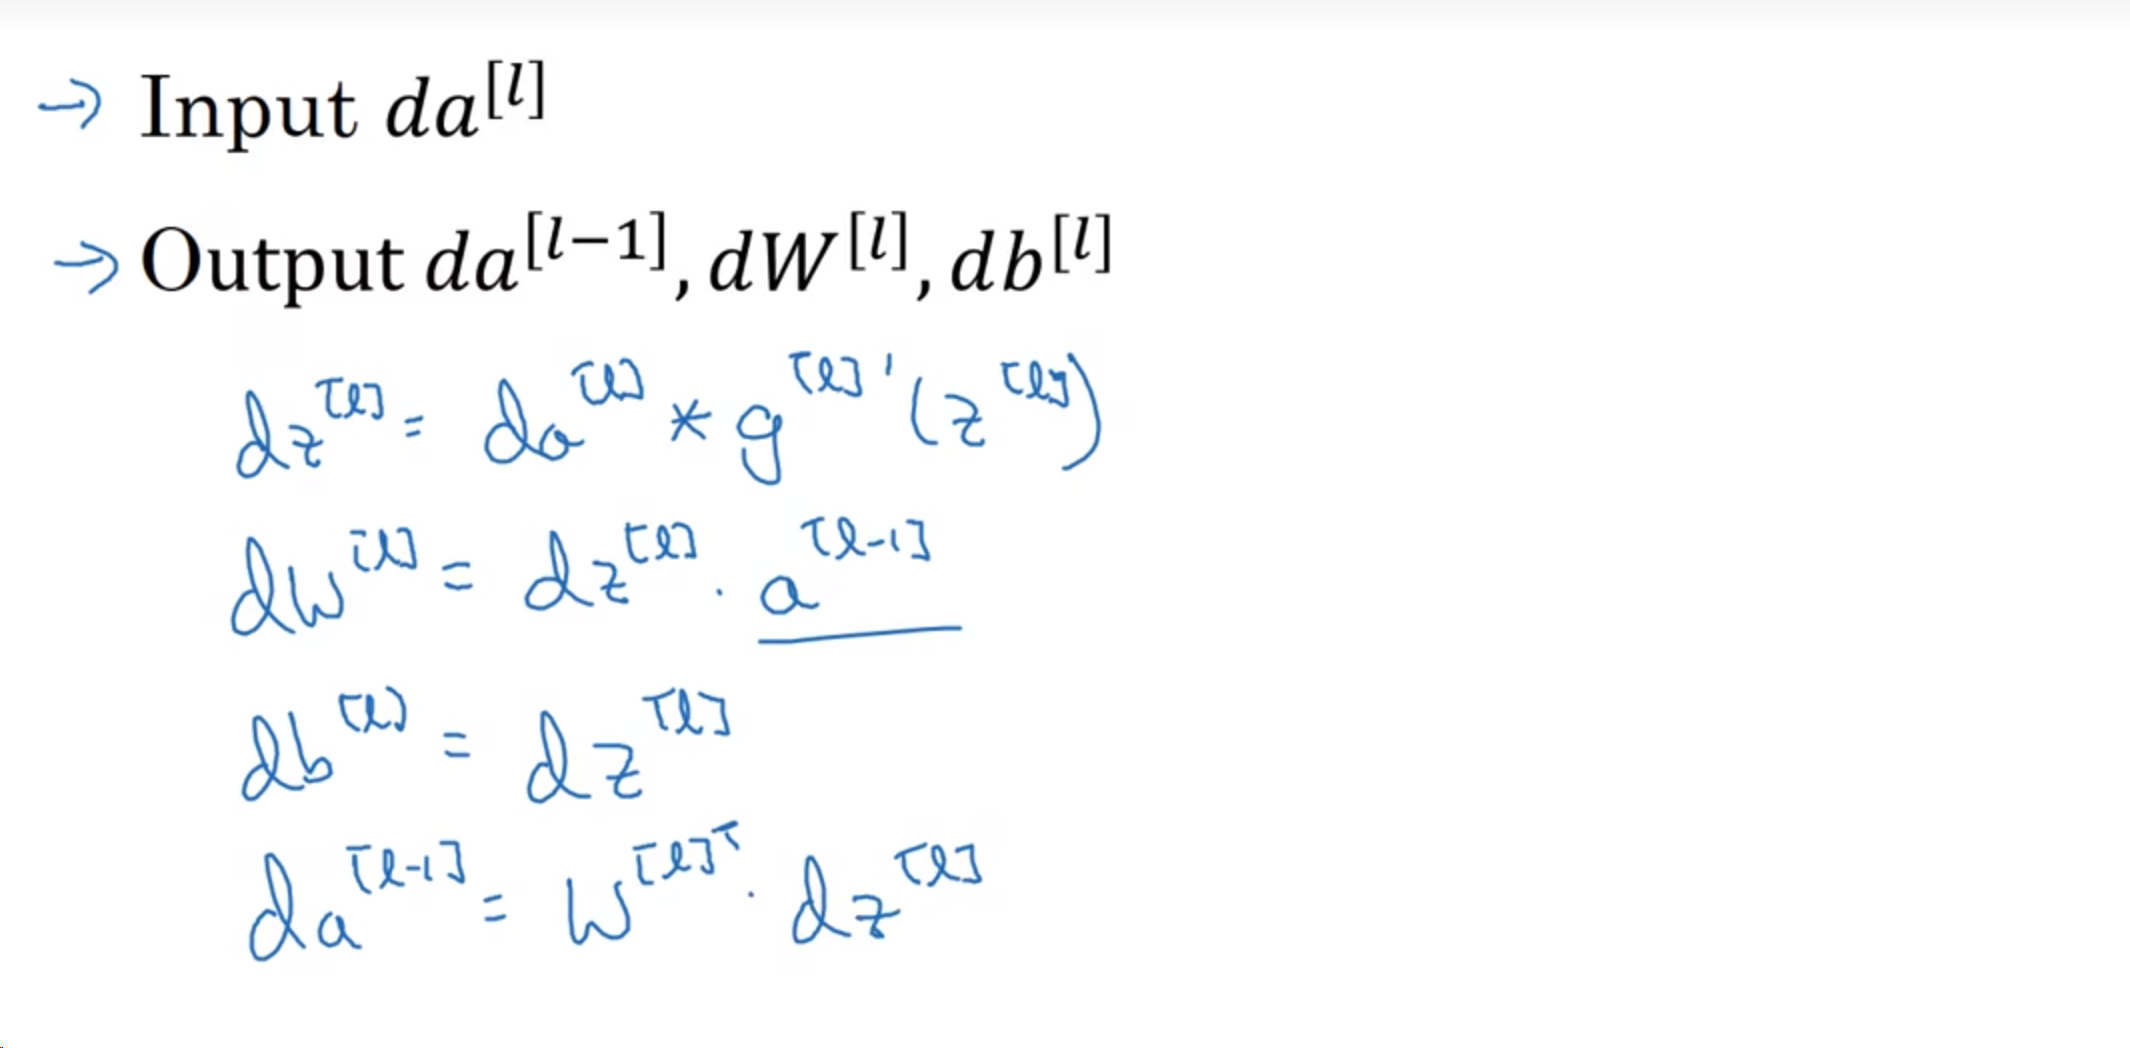 → Input da^[l]
→ Output da^[l−1], dW^[l], db^[l]
dz^[l] = da^[l] * g^[l]'(z^[l])
dw^[l] = dz^[l] · a^[l-1]
db^[l] = dz^[l]
da^[l-1] = w^[l]T · dz^[l]